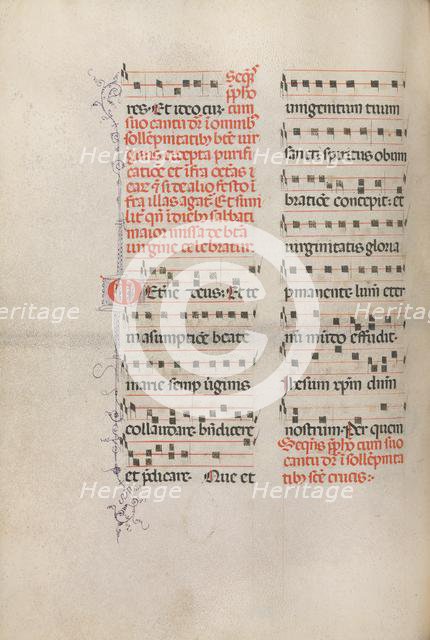 Sequēs
prepho
res. Et ideo cur. cum
suo cantu dr̄ ī omnibꝰ
sollēpnitatibꝰ bt̄e uir
ginis excepta purifi
catiōe et īfra octās ī
car̄ n̄ si de alio festo ī
fra illas agat̄. Et simi
lit̄ qn̄ ī dieb᷒ sabbati
maior missa de bt̄a
uirgine celebratur
Eterne deus: Et te
in assumptiōe beate
marie semp uirginis
collaudare. bn̄dicere
et p̄dicare. Que et
unigenitum tuum
sancti spiritus obum
bratiōe concepit: et
uirginitatis gloria
pmanente lumē eter
nū mūdo effudit.
Ihesum xp̄m dn̄m
nostrum. Per quem
Sequēs p̄pho cum suo
cantu dr̄ ī sollēpnita
tibꝰ sc̄e crucis:
Heritage
Heritage
Heritage
Heritage
Heritage
Heritage
Heritage
Heritage
©